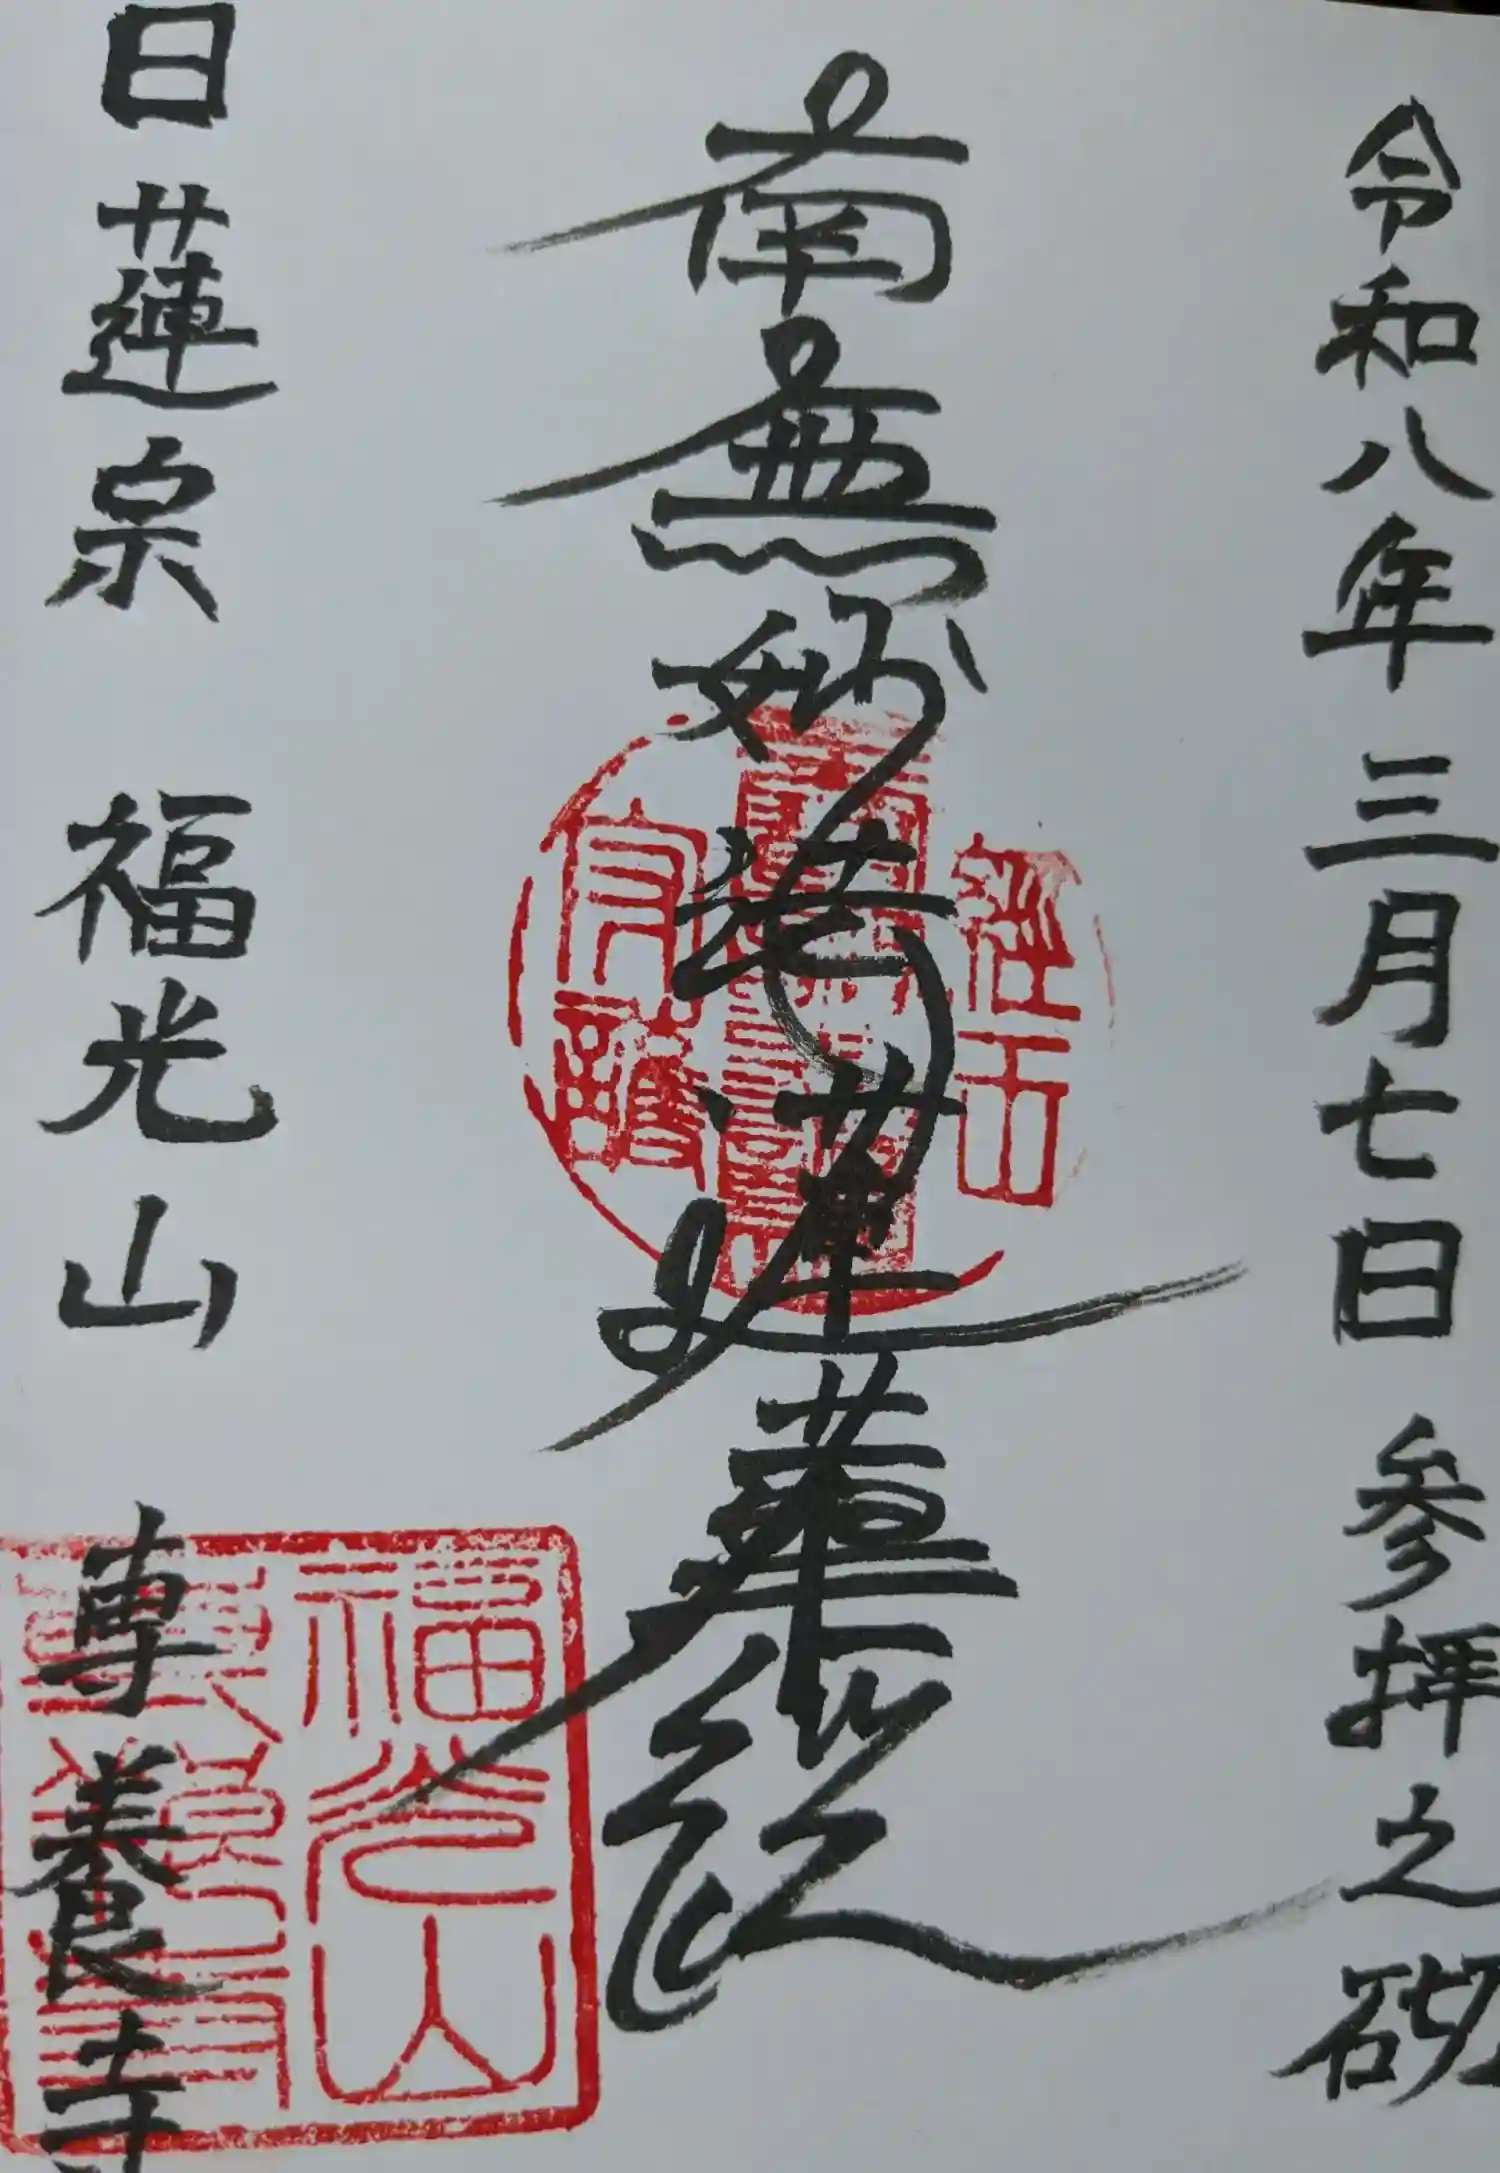 令和八年三月七日 参拝之砌
南無妙法蓮華経
日蓮宗 福光山 専養寺
福光山
専養寺
守護